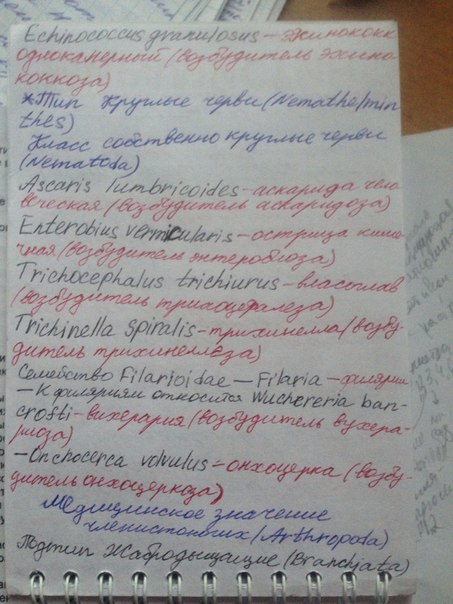 Echinococcus granulosus – эхинококк
однокамерный (возбудитель эхино
коккоза)
*Тип Круглые черви (Nemathelmin
thes)
Класс собственно круглые черви
(Nematoda)
Ascaris lumbricoides – аскарида чело
веческая (возбудитель аскаридоза)
Enterobius vermicularis – острица кише
чная (возбудитель энтеробиоза)
Trichocephalus trichiurus – власоглав
(возбудитель трихоцефалеза)
Trichinella spiralis – трихинелла (возбу-
дитель трихинеллеза)
Семейство Filarioidae – Filaria – филярии
– К филяриям относится Wuchereria ban-
crofti – вухерария (возбудитель вухера-
риоза)
– Onchocerca volvulus – онхоцерка (возбу-
дитель онхоцеркоза)
Медицинское значение
членистоногих (Arthropoda)
Подтип Жабродышащие (Branchiata)